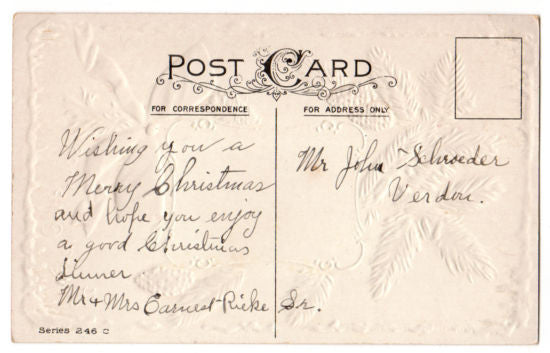 POST CARD
FOR CORRESPONDENCE
FOR ADDRESS ONLY
Wishing you a
Merry Christmas
and hope you enjoy
a good Christmas
dinner.
Mr & Mrs Earnest Rieke Sr.
Mr John Schroeder
Verdon.
Series 246 C